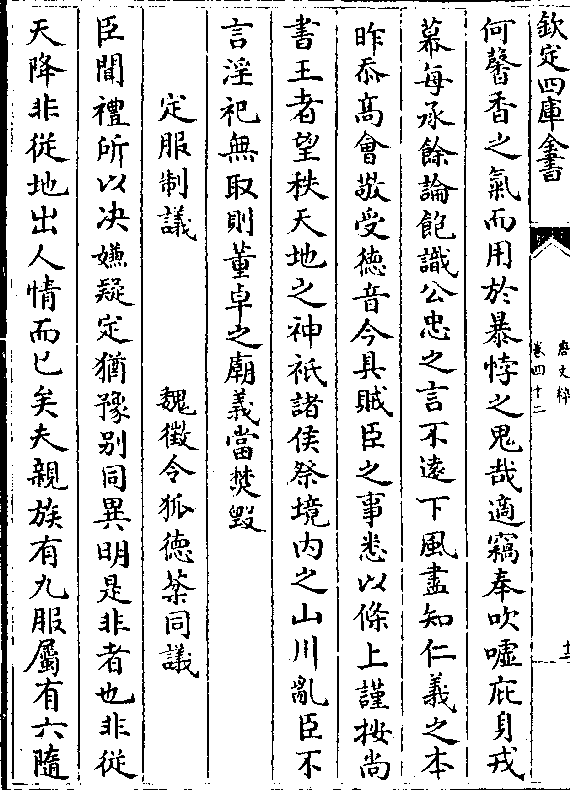 欽定四庫全書
唐文粹
卷四十二
十三
何馨香之氣而用於暴悖之鬼哉適竊奉吹噓庇身戎
幕每承餘論飽識公忠之言不遠下風盡知仁義之本
昨忝髙會敬受徳音今具賊臣之事悉以條上謹按尚
書王者望秩天地之神祇諸侯祭境内之山川亂臣不
言淫祀無取則董卓之廟義當焚毀
定服制議　魏徵令狐徳棻同議
臣聞禮所以决嫌疑定猶豫别同異明是非者也非從
天降非從地出人情而已矣夫親族有九服屬有六隨